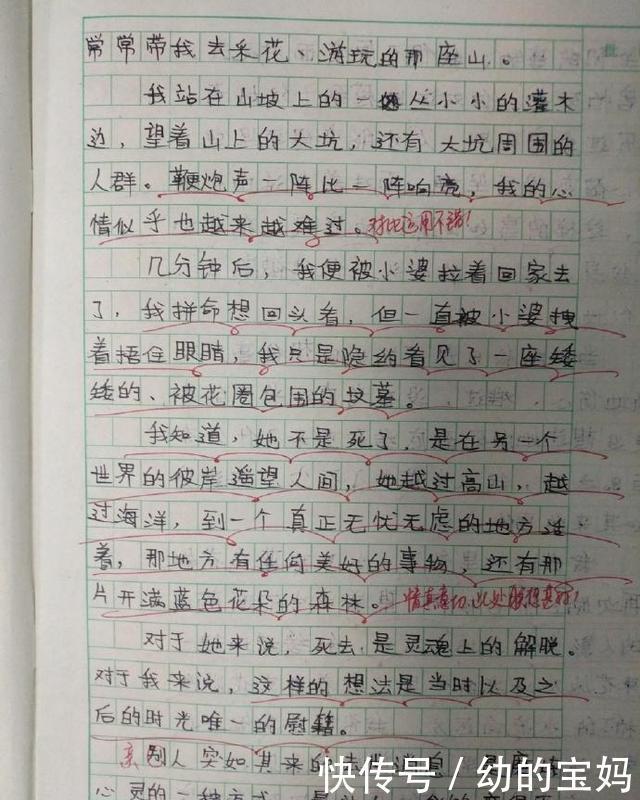 常常带我去采花、游玩的那座山。
我站在山坡上的一丛小小的灌木
边，望着山上的大坑，还有大坑周围的
人群。鞭炮声一阵比一阵响亮，我的心
情似乎也越来越难过。对比运用不错！
几分钟后，我便被小婆拉着回家去
了，我拼命想回头看，但一直被小婆拽
着捂住眼睛，我只是隐约看见了一座矮
矮的、被花圈包围的坟墓。
我知道，她不是死了，是在另一个
世界的彼岸遥望人间，她越过高山，越
过海洋，到一个真正无忧无虑的地方活
着，那地方有任何美好的事物，还有那
片开满蓝色花朵的森林。情真意切，此处联想甚好！
对于她来说，死去是灵魂上的解脱。
对于我来说，这样的想法是当时以及之
后的时光唯一的慰籍。
亲别人突如其来的
心灵的一种方式
快传号 / 幼的宝妈